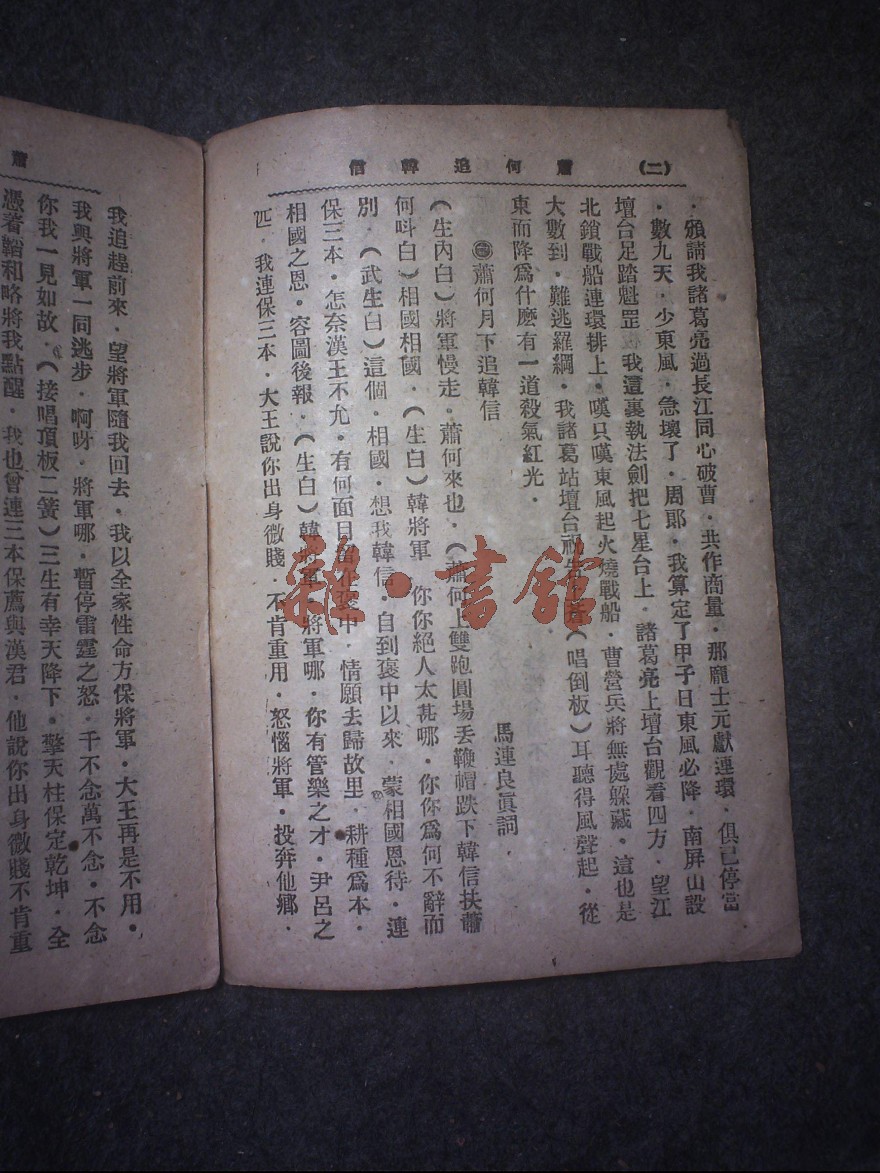 (二) 蕭何追韓信
．頒請我諸葛亮過長江同心破曹．共作商量．那龐士元獻連環．俱已停當
．數九天．少東風．急壞了．周郎．我算定了甲子日東風必降．南屏山設
壇台足踏魁罡 我這裏執法劍把七星台上．諸葛亮上壇台觀看四方．望江
北鎖戰船連環排上．嘆只嘆東風起火燒戰船．曹營兵將無處躲藏．這也是
大數到．難逃羅網．我諸葛站壇台（唱倒板）耳聽得風聲起．從
東而降爲什麽有一道殺氣紅光．
㊁蕭何月下追韓信
馬連良眞詞．
（生內白）將軍慢走．蕭何來也．（蕭何上雙跑圓場丟鞭帽跌下韓信扶蕭
何呌白）相國相國．（生白）韓將軍 你你絕人太甚哪．你你爲何不辭而
別．（武生白）這個．相國．想我韓信．自到褒中以來．蒙相國恩待．連
保三本．怎奈漢王不允．有何面目留在褒中．情願去歸故里．耕種爲本．
相國之恩．容圖後報．（生白）韓將軍．將軍哪．你有管樂之才．尹呂之
匹．我連保三本．大王說你出身微賤．不肯重用．怒惱將軍．投奔他鄉．
蕭
我追趕前來．望將軍隨我回去．我以全家性命方保將軍．大王再是不用．
我與將軍一同逃步．啊呀．將軍哪．暫停雷霆之怒．千不念萬不念．不念
你我一見如故．（接唱頂板二簧）三生有幸天降下．擎天柱保定乾坤．全
憑著韜和略將我點醒．我也曾連三本保薦與漢君．他說你出身微賤不肯重
雜·書館